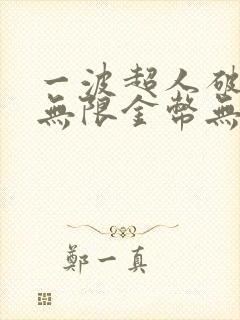 一波超人破
無限金幣無
鄭一真